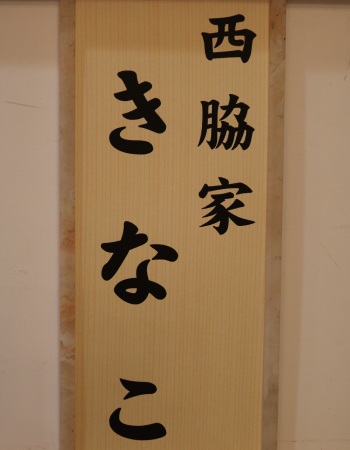 西脇家
きなこ